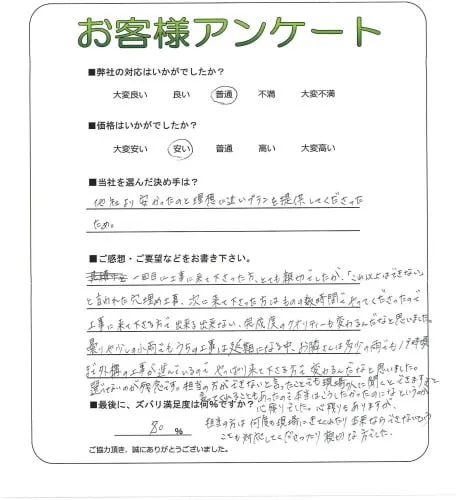 お客様アンケート
■弊社の対応はいかがでしたか？
大変良い 良い 普通 不満 大変不満
■価格はいかがでしたか？
大変安い 安い 普通 高い 大変高い
■当社を選んだ決め手は？
他社より安かったのと理想に近いプランを提供してくださった
ため。
■ご感想・ご要望などをお書き下さい。
一回目に工事に来て下さった方、とても親切でしたが、「これ以上はできない」
と言われた穴埋め工事、次に来て下さった方はものの数時間でやってくださったので
工事に来て下さる方で出来る出来ない、完成度のクオリティーも変わるんだなと思いました。
曇りや少しの小雨でもうちの工事は延期になる中、お隣さんは多少の雨でも19時頃
まで外構の工事が進んでいるので やっぱり来て下さる方で変わるんだなと思いました
選べないのが残念です。担当の方ができないと言ったことでも現場の人に聞くとできますよと
言ってくれることもあったので本当はこうしたかったのになというのが
心残りでした。心残りもありますが、
担当の方は何度も現場にきてくれたり 出来ないという
ことも対応してくださったり親切な方でした。
■最後に、ズバリ満足度は何％ですか？
80 ％
ご協力頂き、誠にありがとうございました。